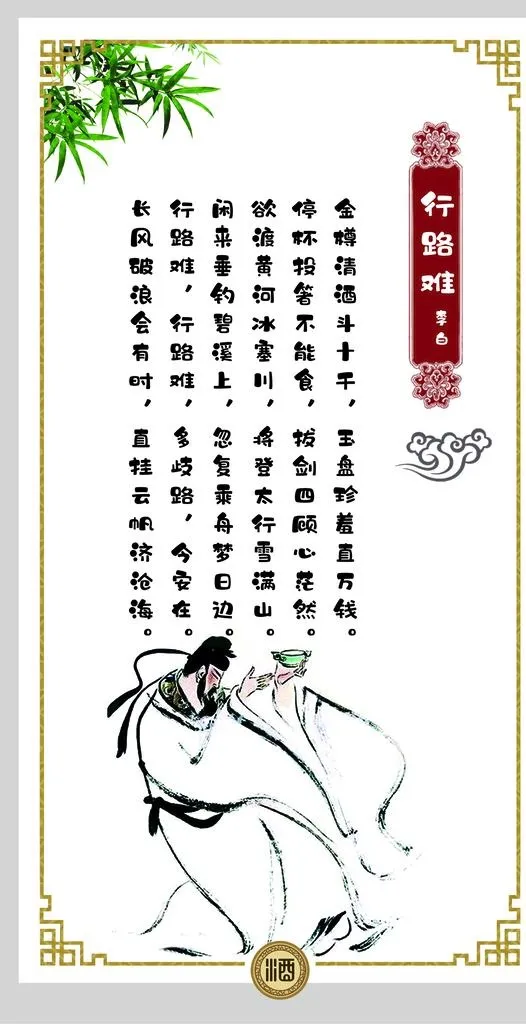 行路难
李白
金樽清酒斗十千，玉盘珍羞直万钱。
停杯投箸不能食，拔剑四顾心茫然。
欲渡黄河冰塞川，将登太行雪满山。
闲来垂钓碧溪上，忽复乘舟梦日边。
行路难，行路难，多歧路，今安在。
长风破浪会有时，直挂云帆济沧海。
酒